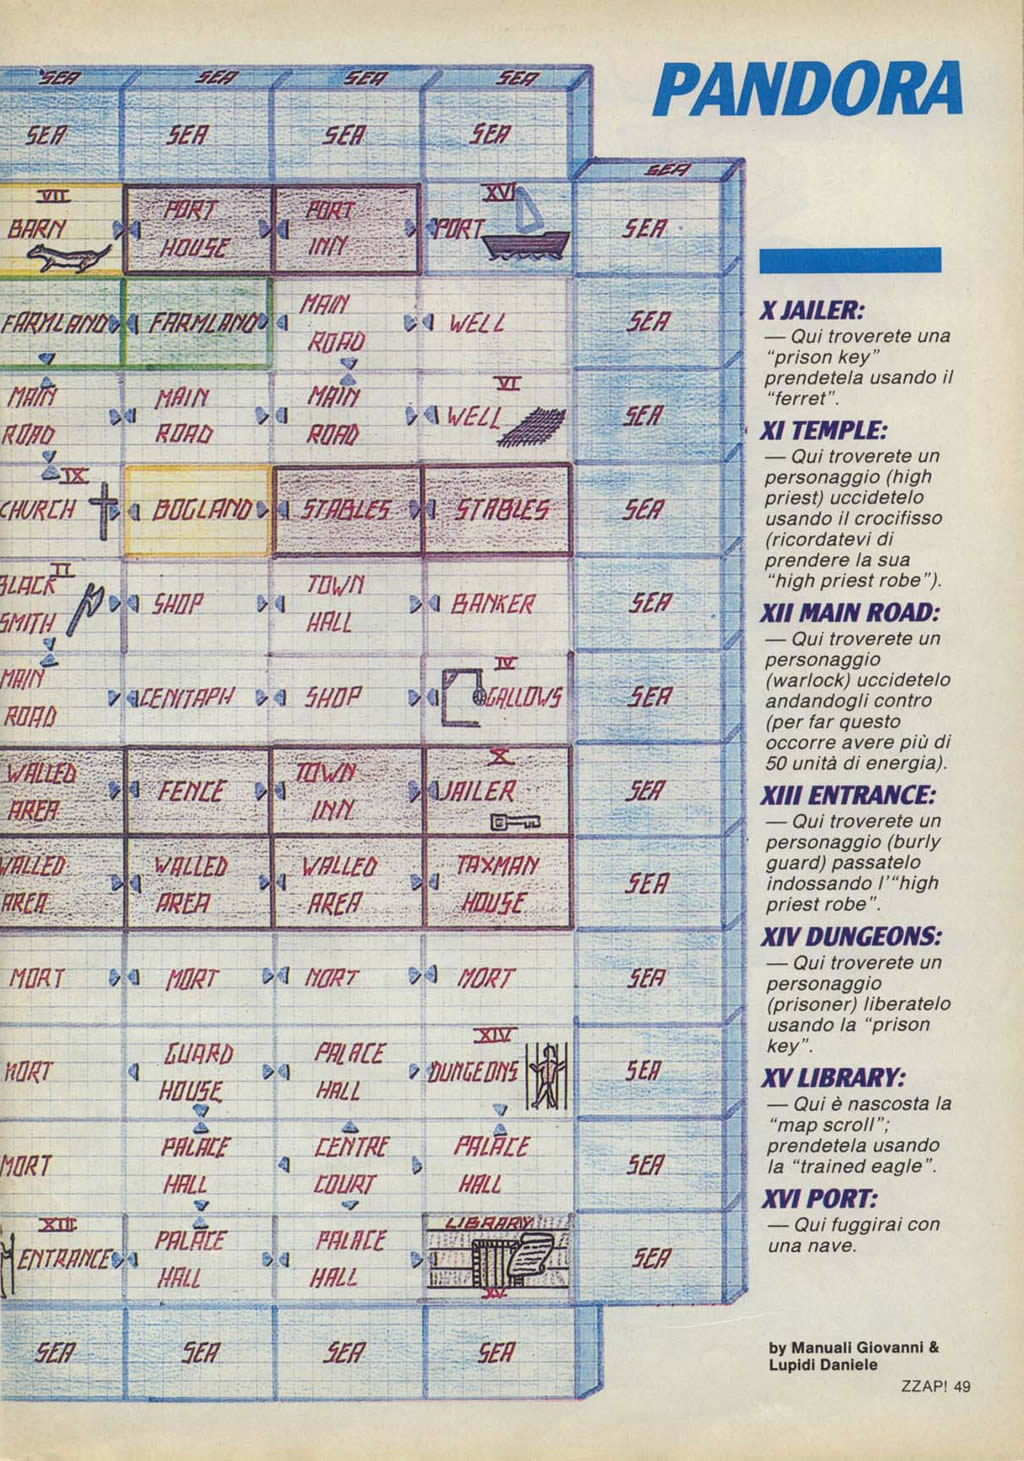 PANDORA
SEA SEA SEA SEA
SEA SEA SEA SEA
SEA
VII XVI
BARN PORT PORT PORT SEA
HOUSE INN
FARMLAND FARMLAND MAIN WELL SEA
ROAD
VI
MAIN MAIN MAIN WELL SEA
ROAD ROAD ROAD
IX
CHURCH BOGLAND STABLES STABLES SEA
II
BLACK SHOP TOWN BANKER SEA
SMITH HALL
IV
MAIN CENITAPH SHOP GALLOWS SEA
ROAD
X
WALLED FENCE TOWN JAILER SEA
AREA INN
WALLED WALLED WALLED TAXMAN SEA
AREA AREA AREA HOUSE
MORT MORT MORT MORT SEA
XIV
MORT GUARD PALACE DUNGEONS SEA
HOUSE HALL
MORT PALACE CENTRE PALACE SEA
HALL COURT HALL
XIII LIBRARY
ENTRANCE PALACE PALACE SEA
HALL HALL XV
SEA SEA SEA SEA
X JAILER:
— Qui troverete una
"prison key"
prendetela usando il
"ferret".
XI TEMPLE:
— Qui troverete un
personaggio (high
priest) uccidetelo
usando il crocifisso
(ricordatevi di
prendere la sua
"high priest robe").
XII MAIN ROAD:
— Qui troverete un
personaggio
(warlock) uccidetelo
andandogli contro
(per far questo
occorre avere più di
50 unità di energia).
XIII ENTRANCE:
— Qui troverete un
personaggio (burly
guard) passatelo
indossando l'"high
priest robe".
XIV DUNGEONS:
— Qui troverete un
personaggio
(prisoner) liberatelo
usando la "prison
key".
XV LIBRARY:
— Qui è nascosta la
"map scroll";
prendetela usando
la "trained eagle".
XVI PORT:
— Qui fuggirai con
una nave.
by Manuali Giovanni &
Lupidi Daniele
ZZAP! 49